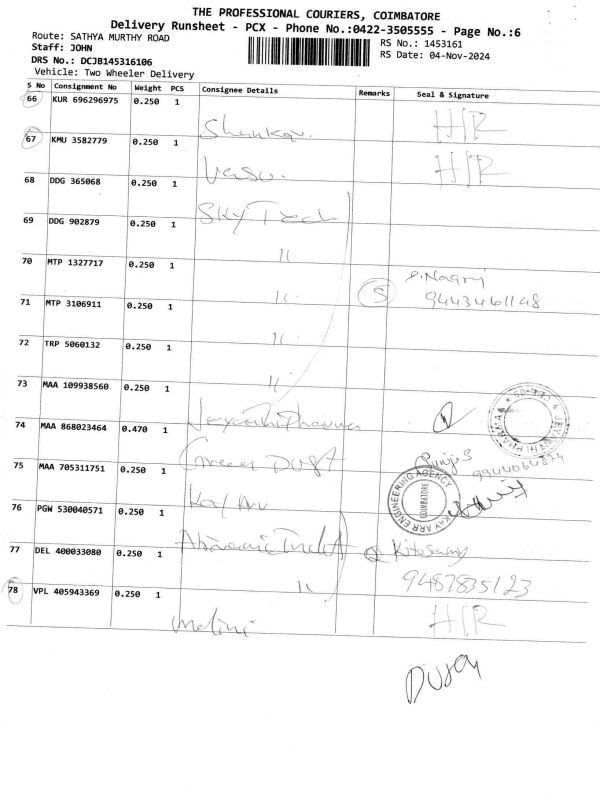 THE PROFESSIONAL COURIERS, COIMBATORE
Delivery Runsheet - PCX - Phone No.:0422-3505555 - Page No.:6
Route: SATHYA MURTHY ROAD
RS No.: 1453161
Staff: JOHN
RS Date: 04-Nov-2024
DRS No.: DCJB145316106
Vehicle: Two Wheeler Delivery
S No Consignment No Weight PCS Consignee Details Remarks Seal & Signature
66 KUR 696296975 0.250 1
Shankar. H/R
67 KMU 3582779 0.250 1
Vasu. H/R
68 DDG 365068 0.250 1
Sky Tech
69 DDG 902879 0.250 1
11
70 MTP 1327717 0.250 1
11 5 P.Nagraj
9443461148
71 MTP 3106911 0.250 1
11
72 TRP 5060132 0.250 1
11
73 MAA 109938560 0.250 1
Jayanthi Pharma
74 MAA 868023464 0.470 1
Green Dust
9944064334
75 MAA 705311751 0.250 1
Kay Arr
KAY ARR ENGINEERING AGENCY
COIMBATORE
76 PGW 530040571 0.250 1
77 DEL 400033080 0.250 1
11 9487835123
78 VPL 405943369 0.250 1
Malini H/R